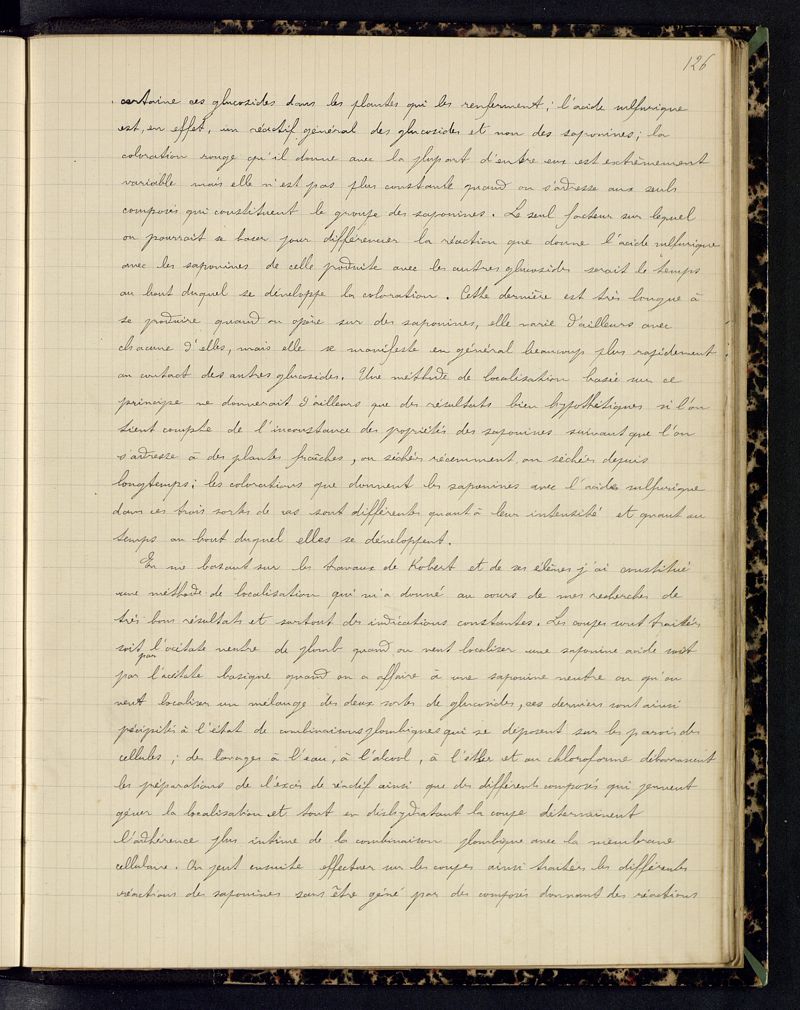 126
certaine ces glucosides dans les plantes qui les renferment; l'acide sulfurique
est, en effet, un réactif général des glucosides et non des saponines; la
coloration rouge qu'il donne avec la plupart d'entre eux est extrêmement
variable mais elle n'est pas plus constante quand on s'adresse aux seuls
composés qui constituent le groupe des saponines. Le seul facteur sur lequel
on pourrait se baser pour différencier la réaction que donne l'acide sulfurique
avec les saponines de celle produite avec les autres glucosides serait le temps
au bout duquel se développe la coloration. Cette dernière est très longue à
se produire quand on opère sur des saponines, elle varie d'ailleurs avec
chacune d'elles, mais elle se manifeste en général beaucoup plus rapidement
au contact des autres glucosides. Une méthode de localisation basée sur ce
principe ne donnerait d'ailleurs que des résultats bien hypothétiques si l'on
tient compte de l'inconstance des propriétés des saponines suivant que l'on
s'adresse à des plantes fraîches, ou séchées récemment, ou séchées depuis
longtemps; les colorations que donnent les saponines avec l'acide sulfurique
dans ces trois sortes de cas sont différentes quant à leur intensité et quant au
temps au bout duquel elles se développent.
En me basant sur les travaux de Kobert et de ses élèves j'ai constitué
une méthode de localisation qui m'a donné au cours de mes recherches de
très bons résultats et surtout des indications constantes. Les coupes sont traitées
soit par l'acétate neutre de plomb quand on veut localiser une saponine acide soit
par l'acétate basique quand on a affaire à une saponine neutre ou qu'on
veut localiser un mélange des deux sortes de glucosides, ces derniers sont ainsi
précipités à l'état de combinaisons plombiques qui se déposent sur les parois des
cellules; des lavages à l'eau, à l'alcool, à l'éther et au chloroforme débarrassent
les préparations de l'excès de réactif ainsi que des différents composés qui peuvent
gêner la localisation et tout en dishydratant la coupe déterminent
l'adhérence plus intime de la combinaison plombique avec la membrane
cellulaire. On peut ensuite effectuer sur les coupes ainsi traitées les différentes
réactions des saponines sans être gêné par des composés donnant des réactions